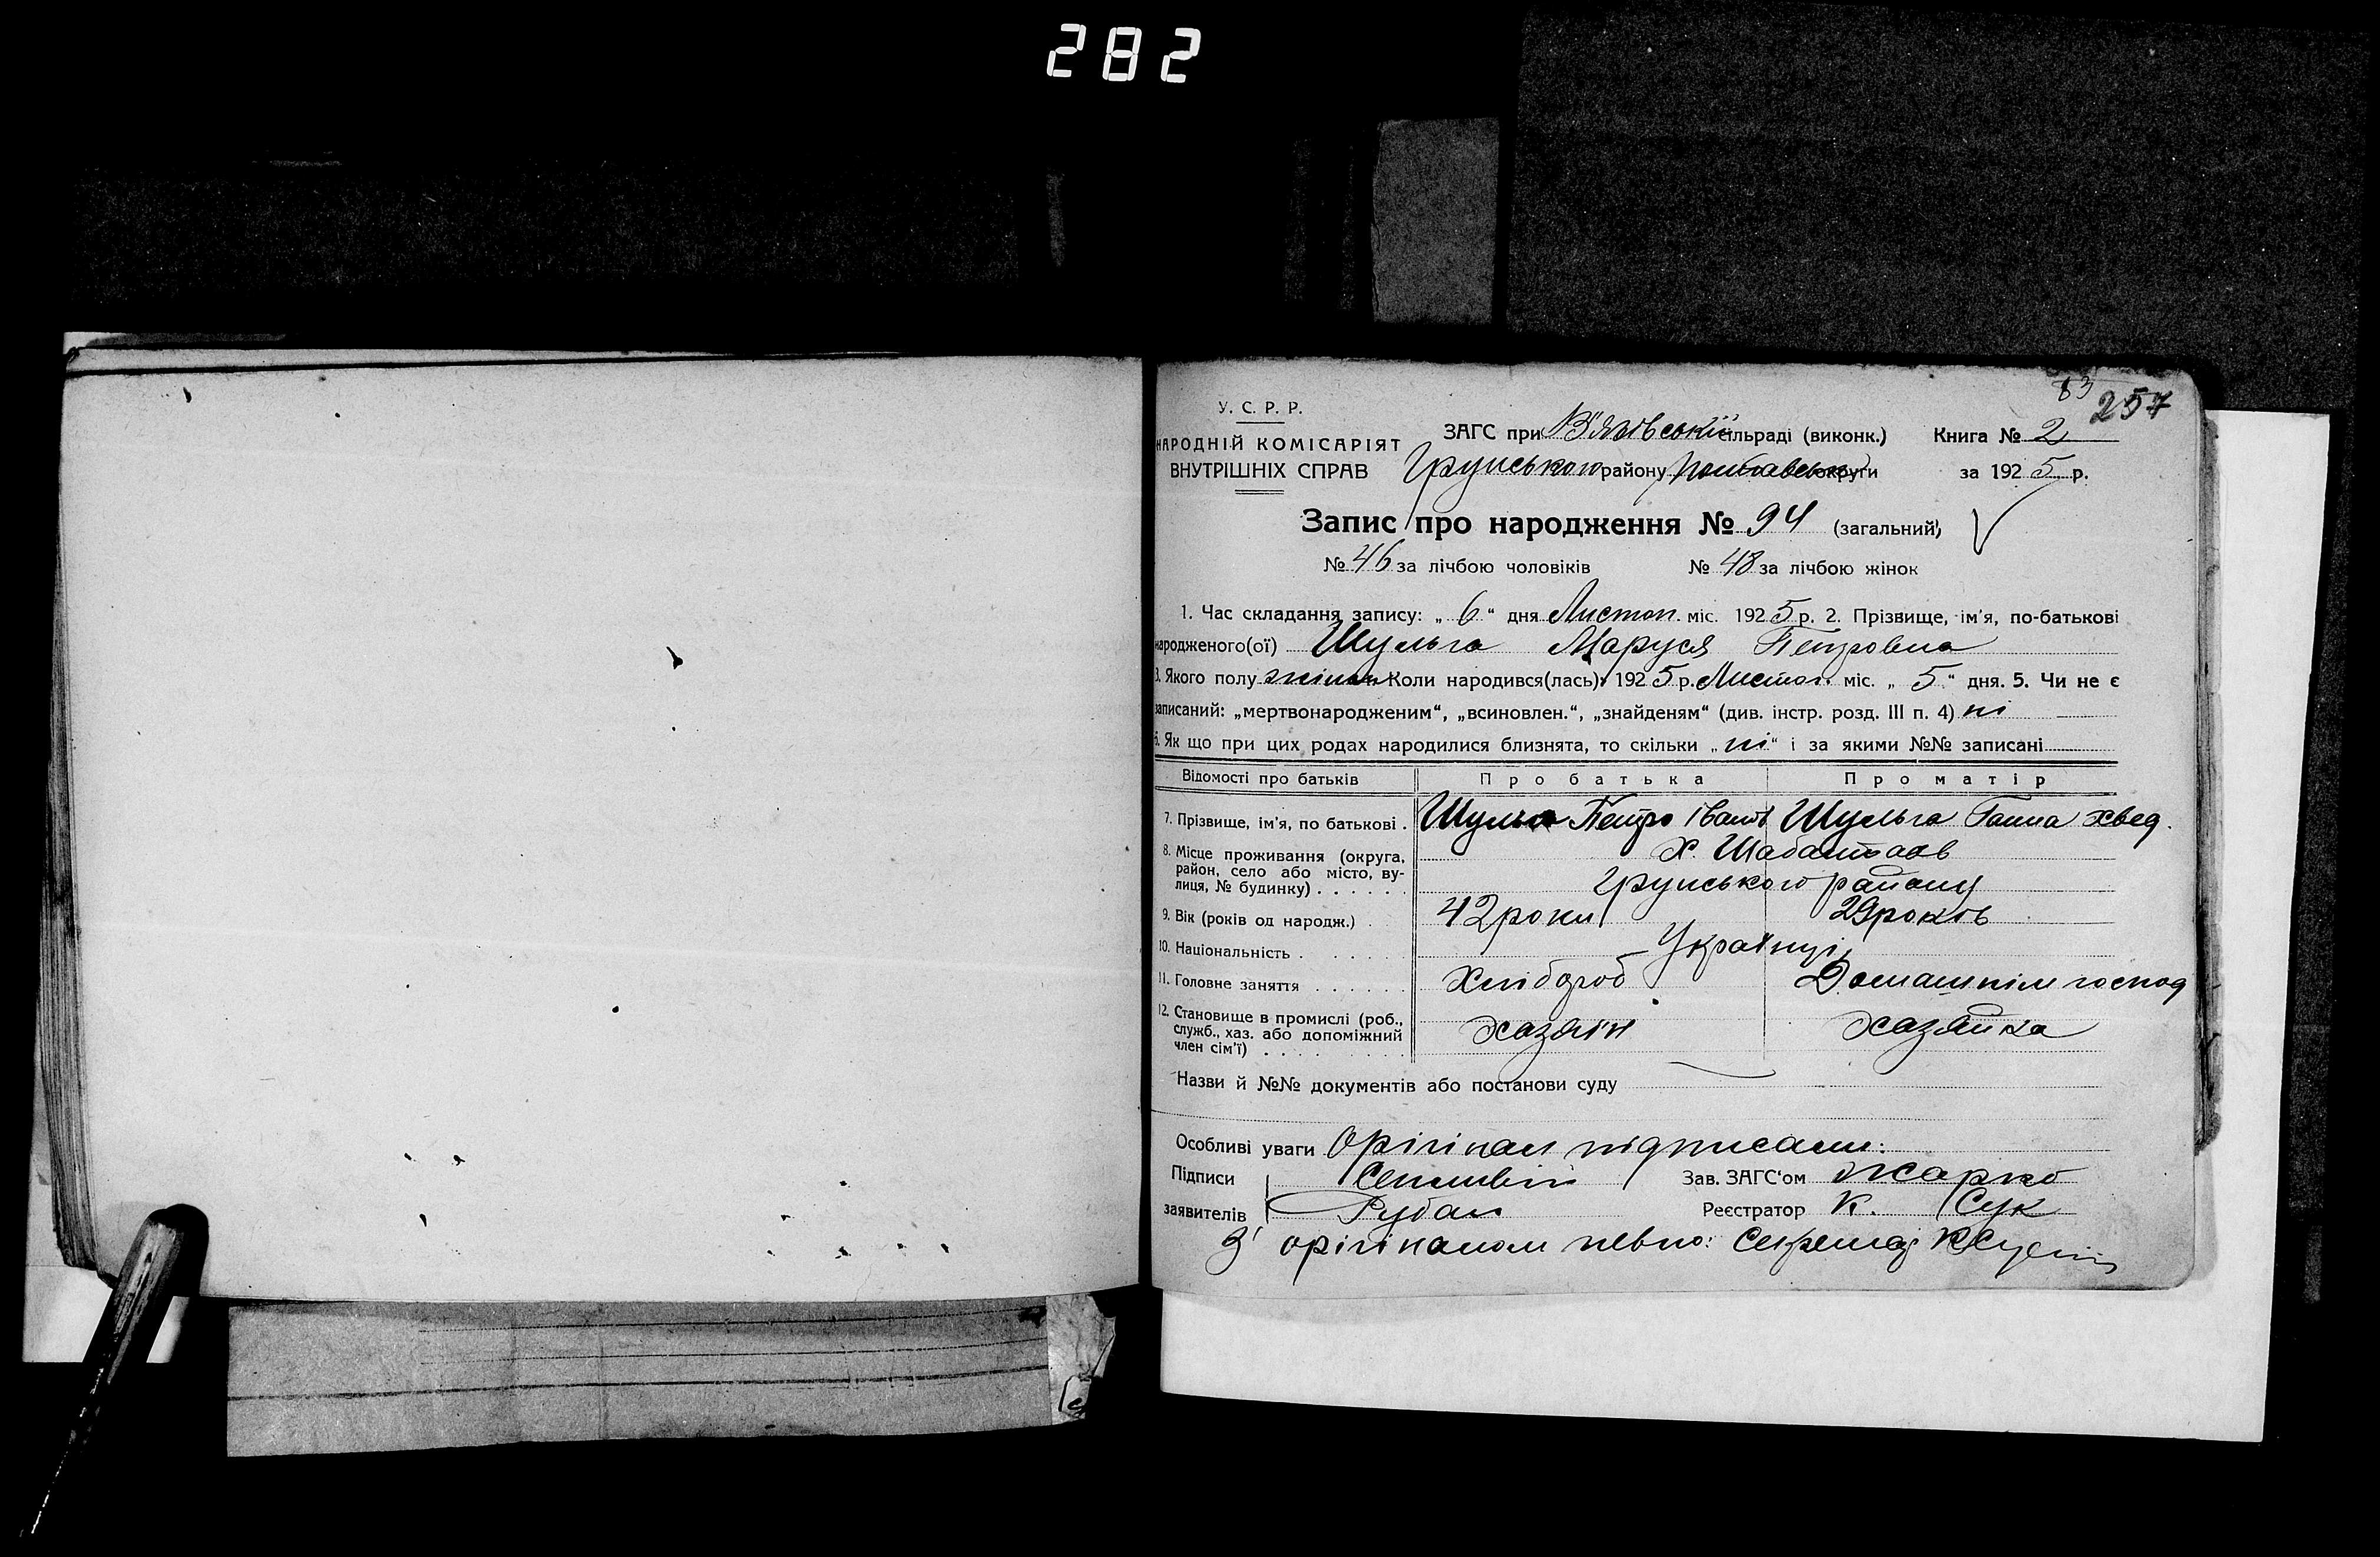 282
83
257
У. С. Р. Р.
НАРОДНІЙ КОМІСАРІЯТ
ВНУТРІШНІХ СПРАВ
ЗАГС при В'язівській сільраді (виконк.) Книга № 2
Грунського району Полтавської округи за 1925 р.
Запис про народження № 94 (загальний)
№ 46 за лічбою чоловіків № 48 за лічбою жінок
1. Час складання запису: „ 6 “ дня Листоп. міс. 1925 р. 2. Прізвище, ім'я, по-батькові
народженого(ої) Шульга Маруся Петровна
3. Якого полу жіноч. Коли народився(лась): 1925 р. Листоп. міс. „ 5 “ дня. 5. Чи не є
записаний: „мертвонародженим“, „всиновлен.“, „знайденям“ (див. інстр. розд. III п. 4) ні
6. Як що при цих родах народилися близнята, то скільки „ ні “ і за якими №№ записані
Відомості про батьків Про батька Про матір
7. Прізвище, ім'я, по батькові . Шульга Петро Іванов Шульга Ганна Хвед.
8. Місце проживання (округа, район, село або місто, вулиця, № будинку) . . . . . .
Х.
Грунського району
9. Вік (років од народж.) . 42 роки 29 років
10. Національність . . . . . . Українці
11. Головне заняття . . . . . . Хлібороб Домашнім господ
12. Становище в промислі (роб., служб., хаз. або допоміжний член сім'ї) . . . . Хазяїн Хазяйка
Назви й №№ документів або постанови суду
Особливі уваги Орігінал підписали:
Підписи Зав. ЗАГС'ом Жарко
заявителів Рубан Реєстратор К. Сук
З орігіналом певно: Секретар